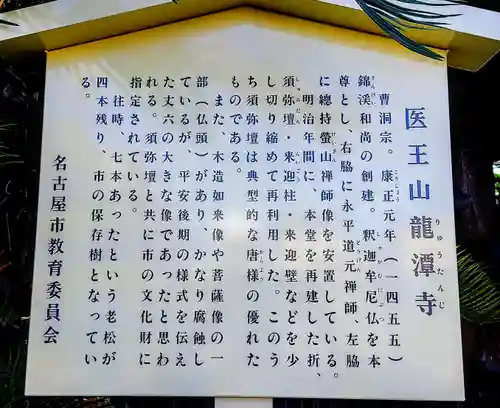 医王山龍潭寺
りゅうたんじ
曹洞宗。康正元年（一四五五）
錦渓和尚の創建。釈迦牟尼仏を本
尊とし、右脇に永平道元禅師、左脇
に總持螢山禅師像を安置している。
明治年間に、本堂を再建した折、
須弥壇・来迎柱・来迎壁などを少
し切り縮めて再利用した。このう
ち須弥壇は典型的な唐様の優れた
ものである。
また、木造如来像や菩薩像の一
部（仏頭）があり、かなり腐蝕し
ているが、平安後期の様式を伝え
た丈六の大きな像であったと思わ
れる。須弥壇と共に市の文化財に
指定されている。
往時、七本あったという老松が
四本残り、市の保存樹となってい
る。
名古屋市教育委員会